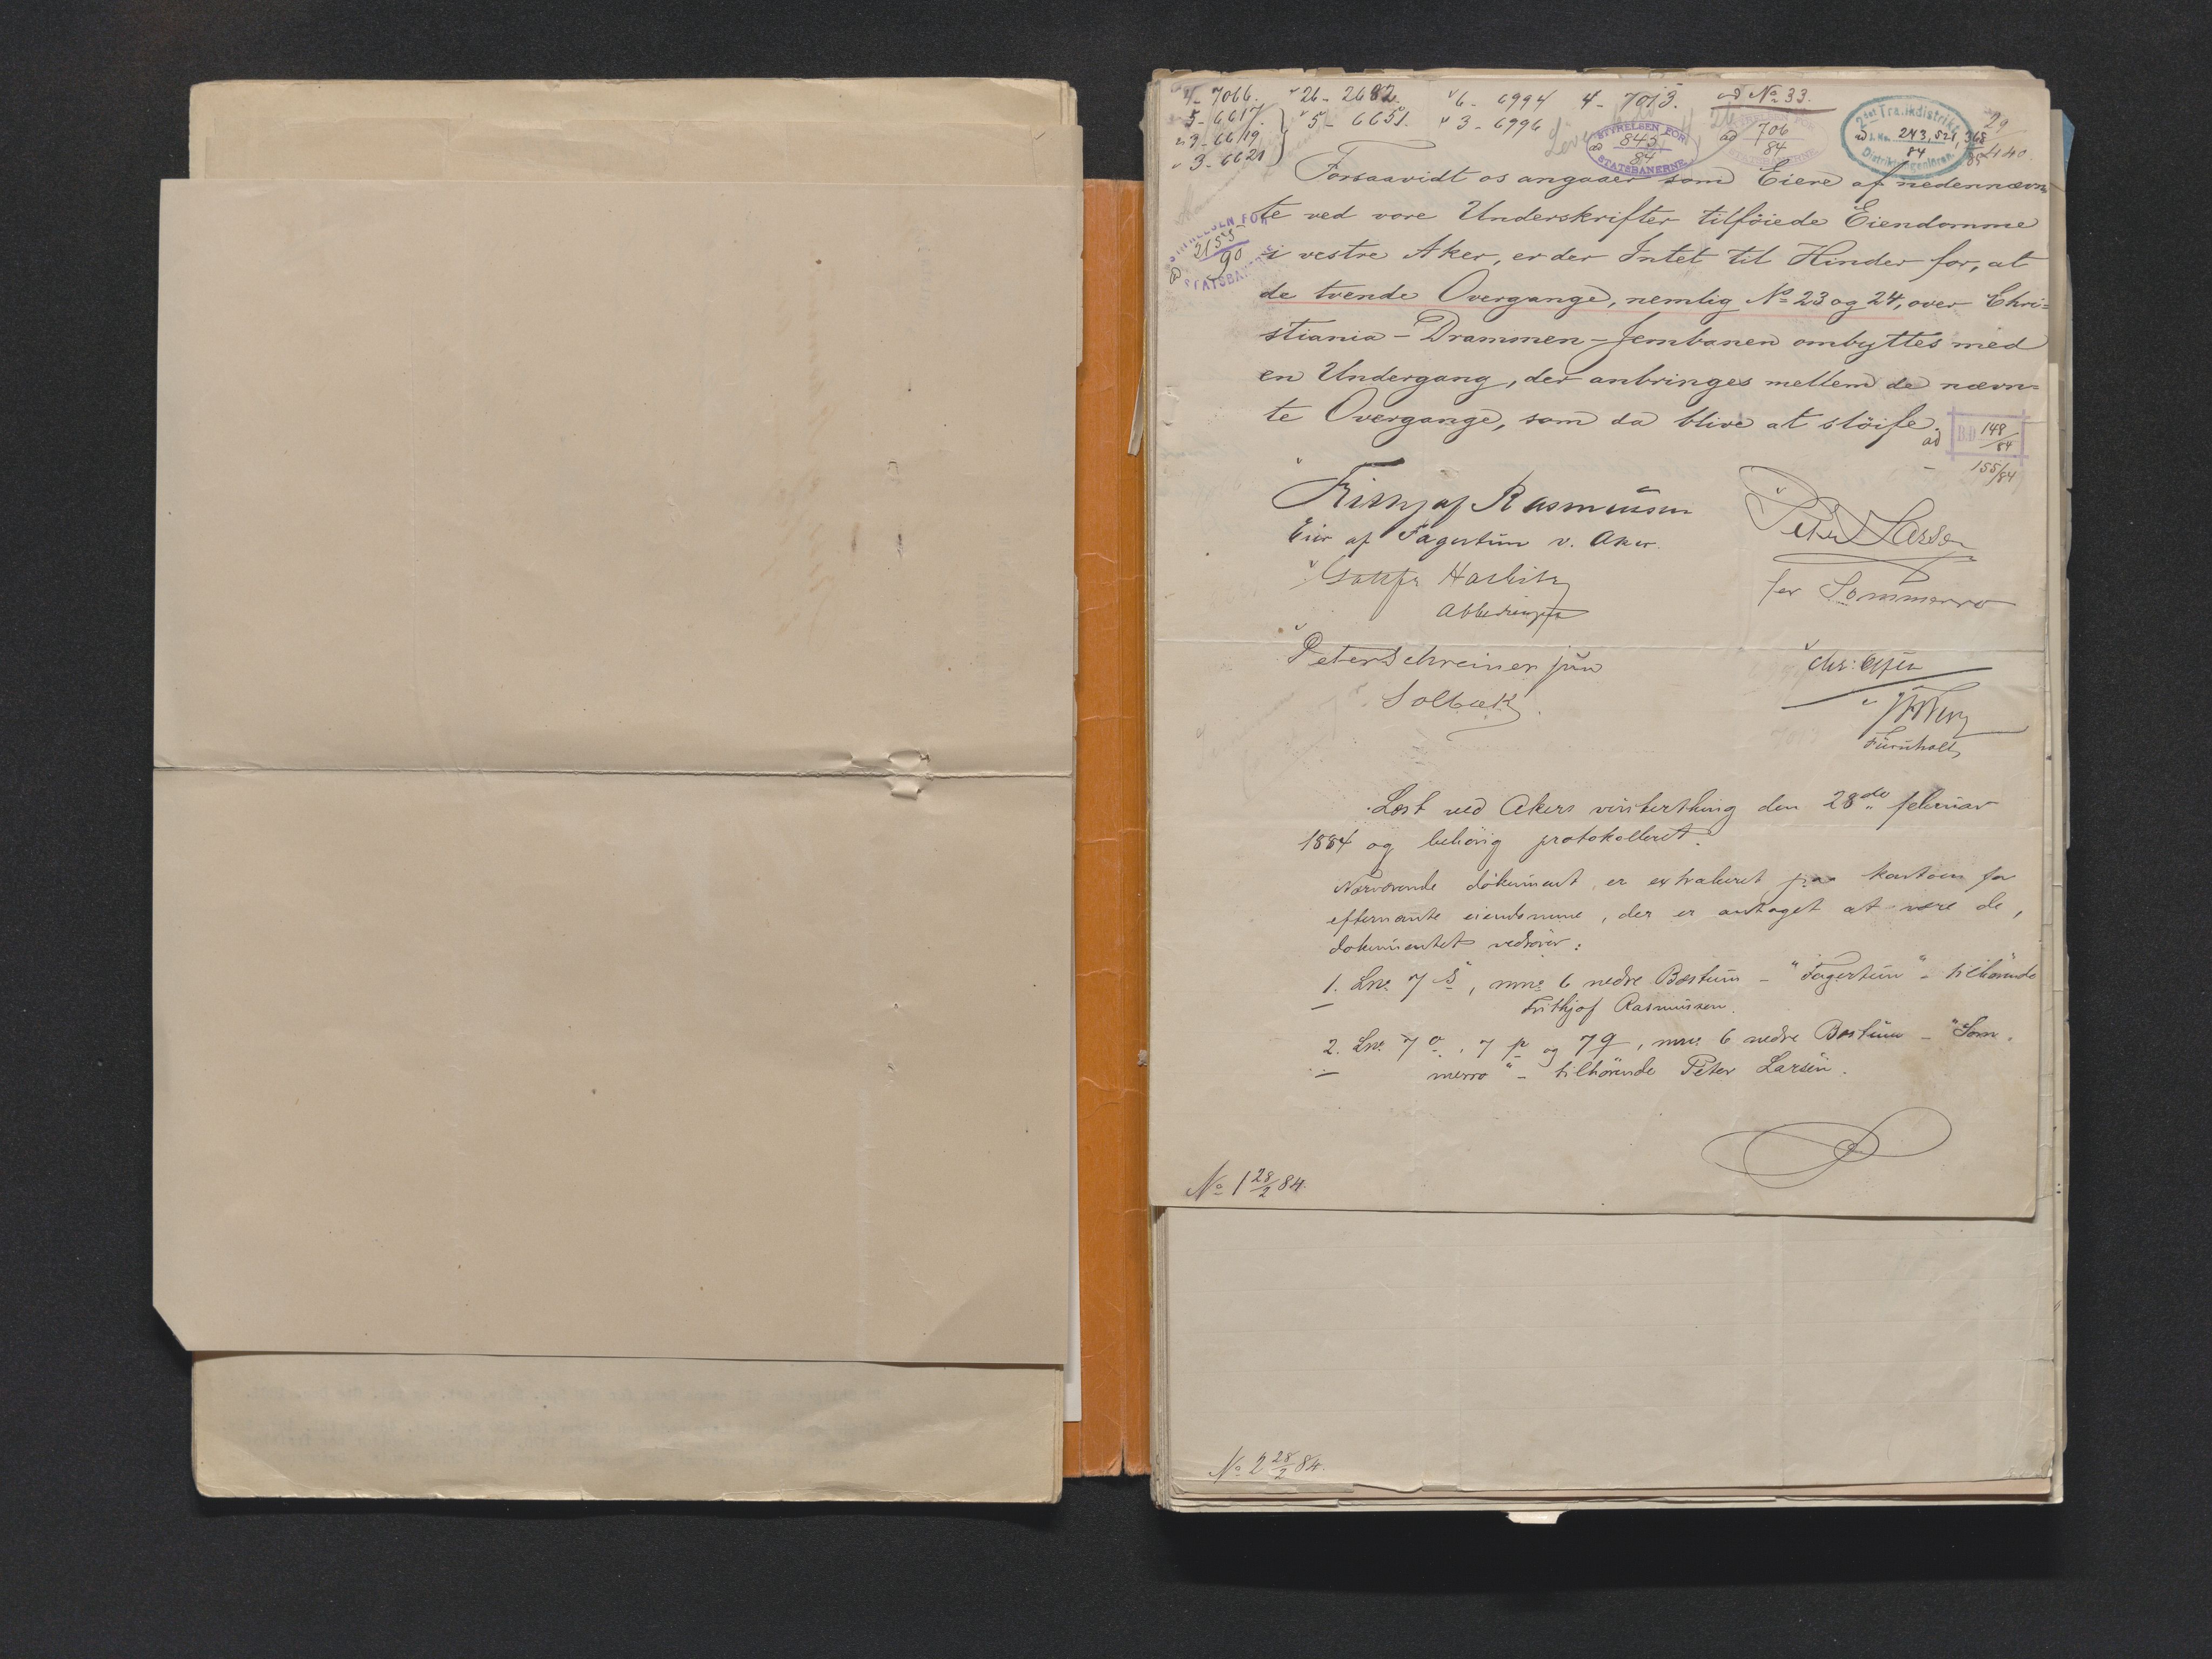 4- 7066. 26- 2682. 6- 6994 4- 7013. ad No 33.
5- 6617. 5- 6651. 3- 6996
3- 6619
3- 6621
STYRELSEN FOR
ad 845
84
STATSBANERNE
ad 706
84
STATSBANERNE
2det Trafikdistrikt
ad J. No. 243, 521, 368
84 85
Distriktsingeniøren
29
4140.
Forsaavidt os angaaer som Eiere af nedennævn-
te ved vore Underskrifter tilføiede Eiendomme
STYRELSEN FOR
ad 2155
90
STATSBANERNE
i vestre Aker, er der Intet til Hinder for, at
de tvende Overgange, nemlig No 23 og 24, over Chri=
stiania-Drammen-Jernbanen ombyttes med
en Undergang, der anbringes mellem de nævn=
te Overgange, som da blive at sløife.
ad B.D. 148
84
- 155/84
Frithjof Rasmussen
Eier af Fagertun v. Aker.
Peter Larsen
for Sommerro
Harbitz
Peter Schreiner jun
Solbæk.
Chr:
Furuholt
Læst ved Akers vinterthing den 28de februar
1884 og behörig protokolleret.
Nærværende dokument er extraheret paa kontoen for
efternævnte eiendomme, der er antaget at være de,
dokumentet vedrører:
1. Lno 7 s, mno 6 nedre Bæstum - "Fagertun" - tilhörende
Frithjof Rasmussen.
2. Lno 7 o, 7 p og 7 q, mno 6 nedre Bæstum - "Som-
merro" - tilhörende Peter Larsen.
No 1 28/2 84.
No 2 28/2 84.